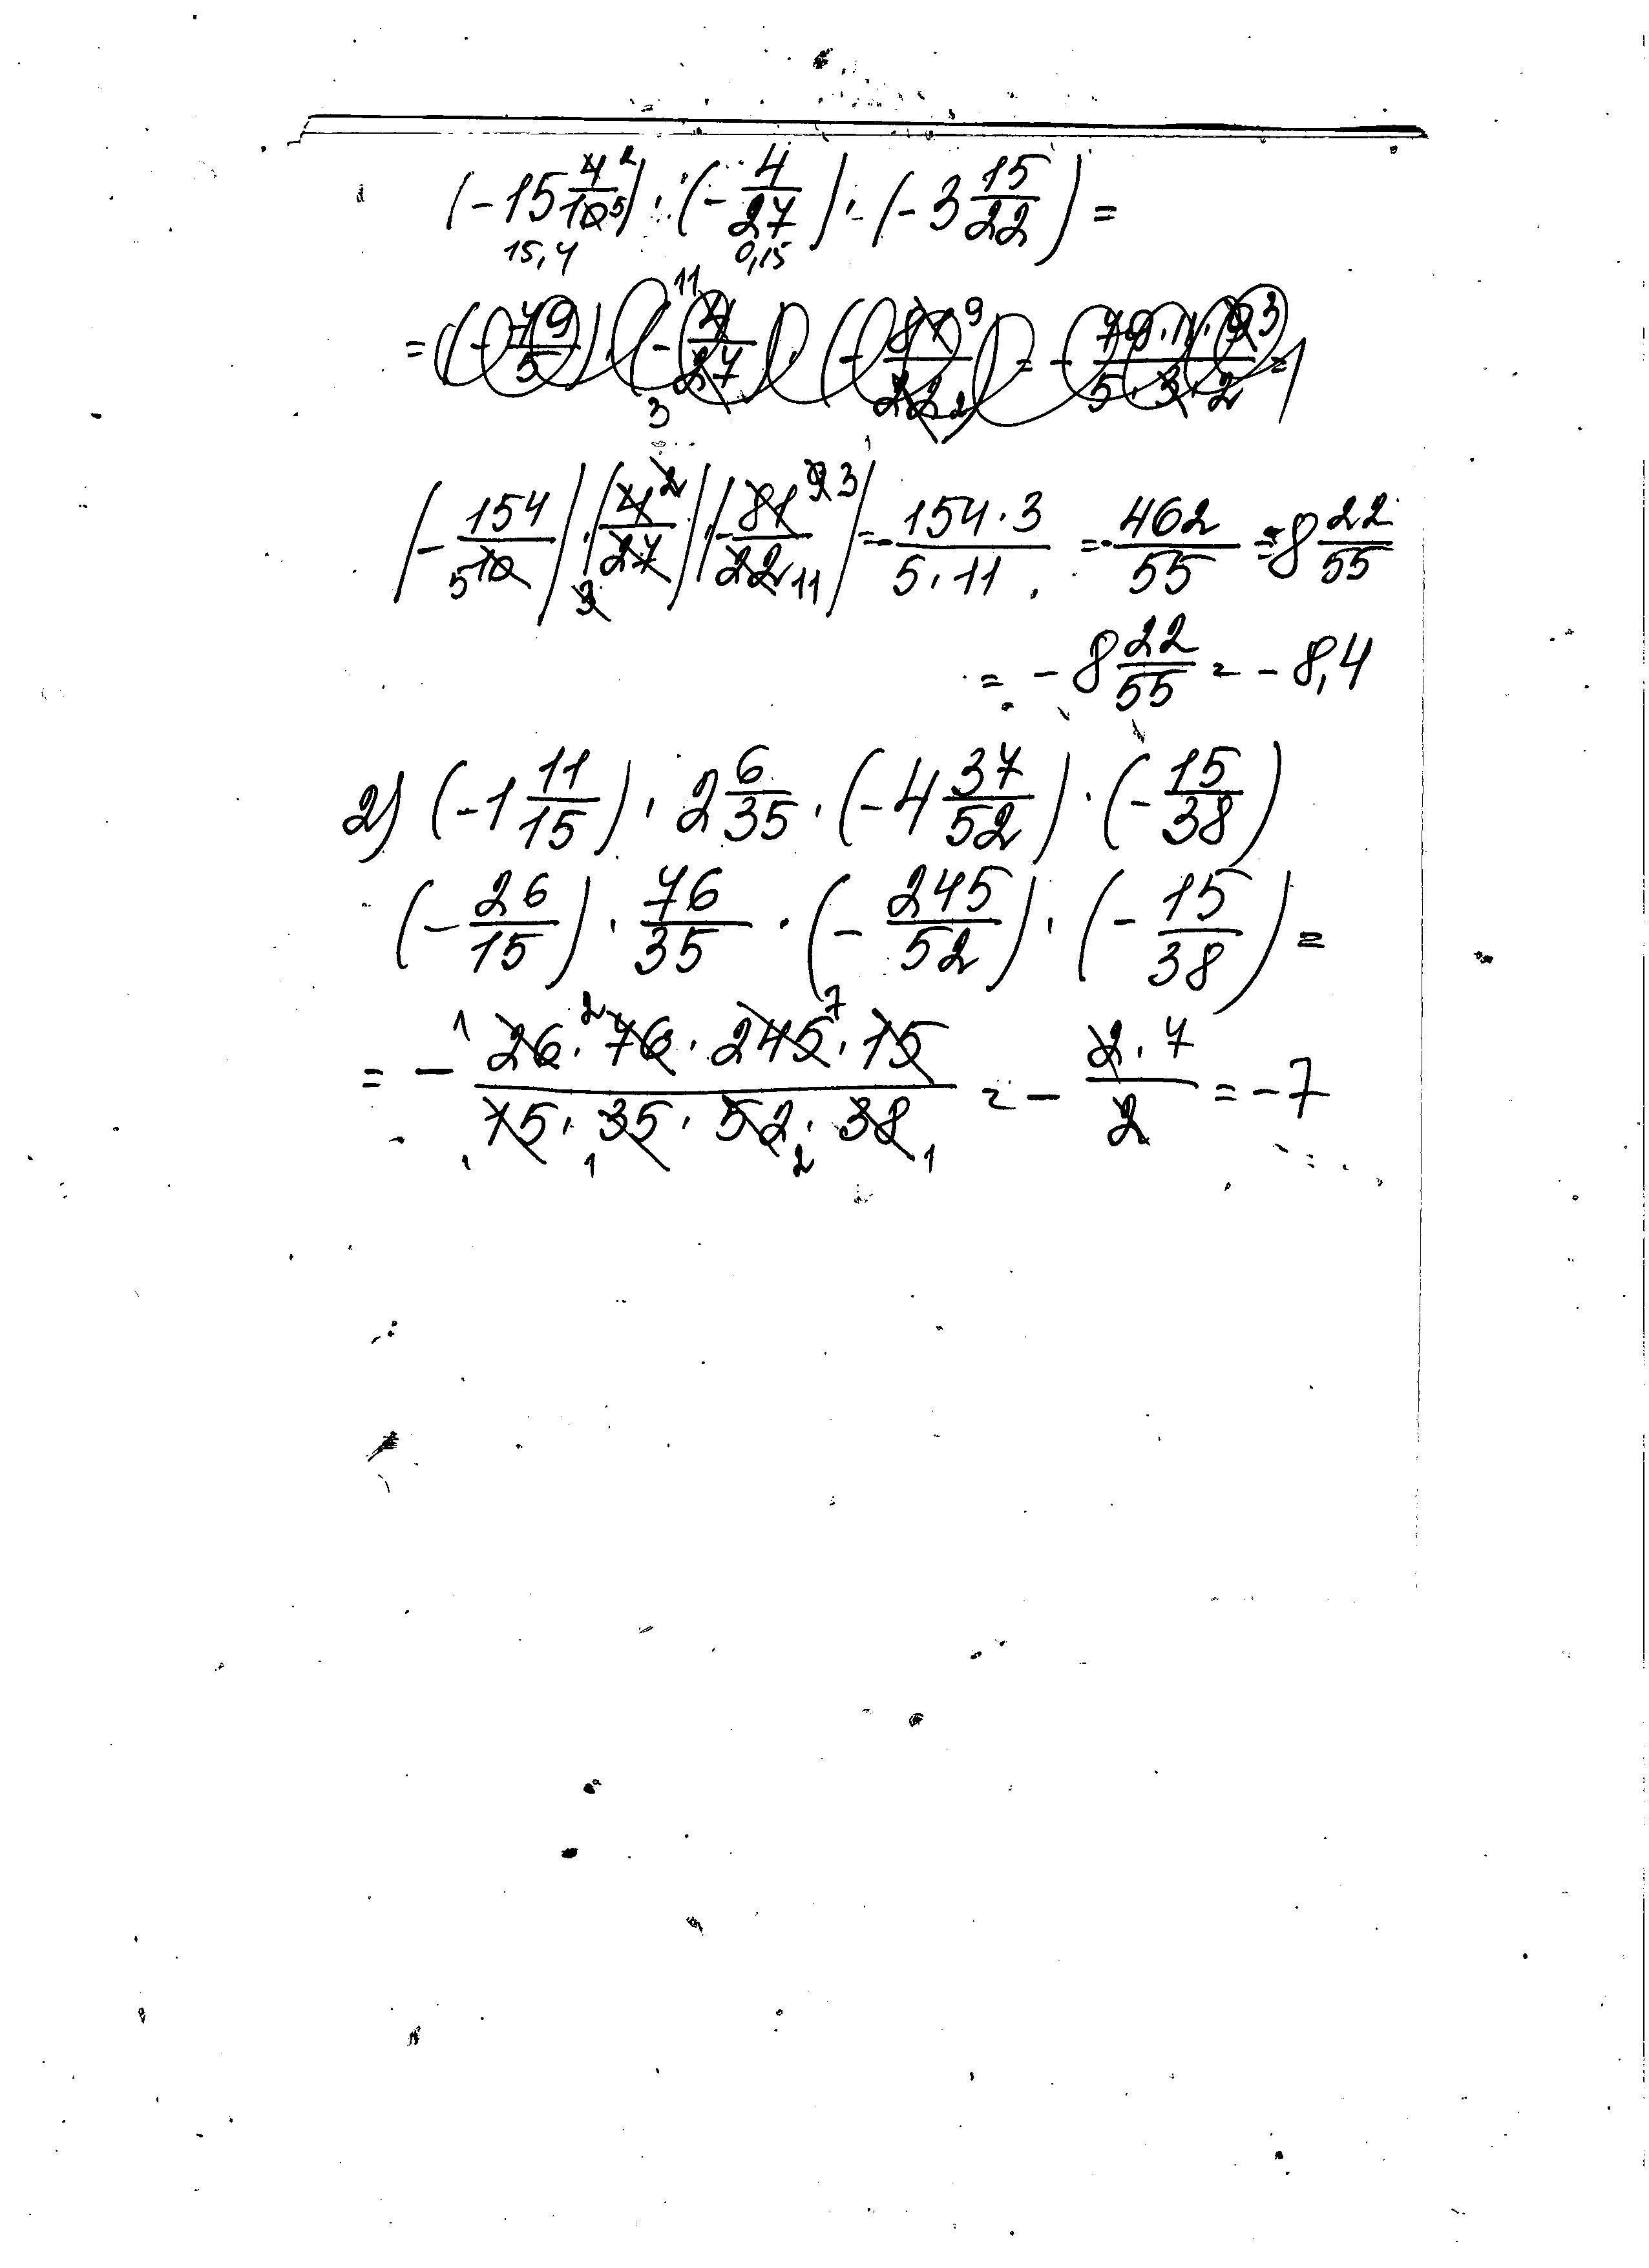 (-15 4/10 2 5) · (-4/27) · (-3 15/22) =
15,4 0,15
= (-79/5) · (-4/27) · (-81/22) = -
(-154/10) · (4/27) · (-81/22) = -154·3/5·11 = -462/55 = -8 22/55
= -8 22/55 = -8,4
2) (-1 11/15) · 2 6/35 · (-4 37/52) · (-15/38)
(-26/15) · 76/35 · (-245/52) · (-15/38) =
= - 26·76·245·15/15·35·52·38 = - 2·7/2 = -7